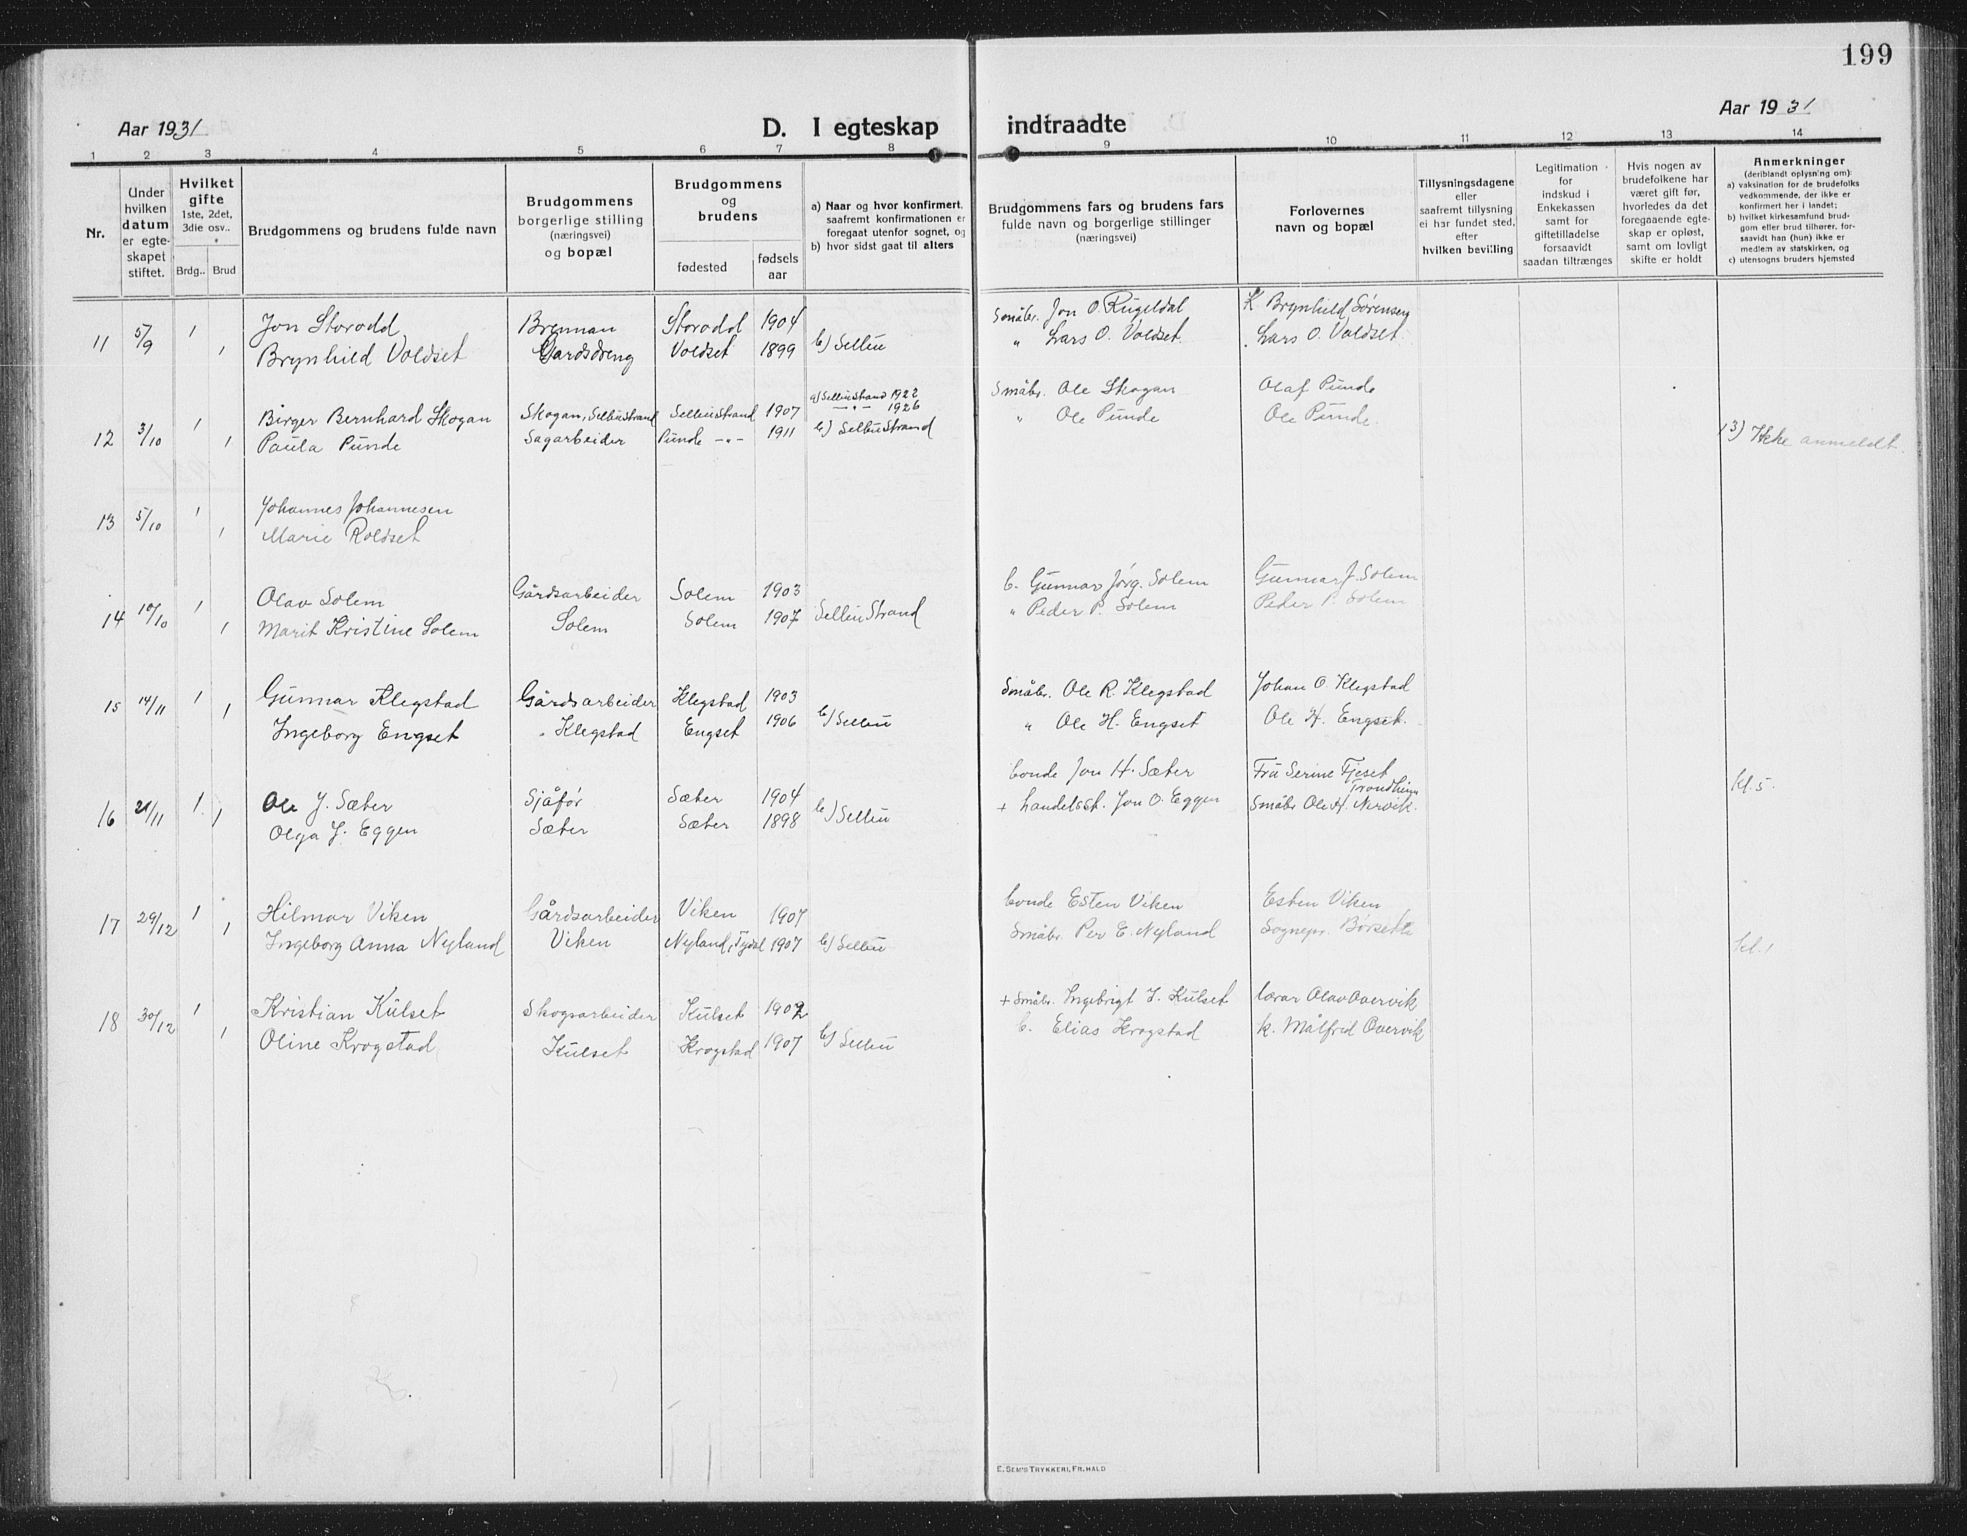 199
Aar 1931
D. I egteskap indtraadte
Aar 1931
1 2 3 4 5 6 7 8 9 10 11 12 13 14
Nr.
Under hvilken datum er egteskapet stiftet.
Hvilket gifte
1ste, 2det, 3die osv..
Brdg.. Brud
Brudgommens og brudens fulde navn
Brudgommens borgerlige stilling (næringsvei) og bopæl
Brudgommens og brudens
fødested
fødsels aar
a) Naar og hvor konfirmert,
saafremt konfirmationen er
foregaat utenfor sognet, og
b) hvor sidst gaat til alters
Brudgommens fars og brudens fars
fulde navn og borgerlige stillinger
(næringsvei)
Forlovernes
navn og bopæl
Tillysningsdagene
eller
saafremt tillysning
ei har fundet sted,
efter
hvilken bevilling
Legitimation
for
indskud i
Enkekassen
samt for
giftetilladelse
forsaavidt
saadan tiltrænges
Hvis nogen av
brudefolkene har
været gift før,
hvorledes da det
foregaaende egte-
skap er opløst,
samt om lovligt
skifte er holdt
Anmerkninger
(deriblandt oplysning om):
a) vaksination for de brudefolks
vedkommende, der ikke er
konfirmert her i landet;
b) hvilket kirkesamfund brud-
gom eller brud tilhører, for-
saavidt han (hun) ikke er
medlem av statskirken, og
c) utensogns bruders hjemsted
11 5/9 1 Jon Storodd Brennan Storodd 1904 Småbr. Jon O. Rugeldal K Brynhild Sørensen
1 Brynhild Voldset Gardsdreng Voldset 1899 b) Selbu " Lars O. Voldset. Lars O. Voldset.
12 3/10 1 Birger Bernhard Skogan Skogan, Selbustrand Selbustrand 1907 a) Selbustrand 1922 Småbr. Ole Skogan Olaf Punde
1 Paula Punde Sagarbeider Punde -"- 1911 -"- 1926 b) Selbustrand " Ole Punde Ole Punde. 13) Ikke anmeldt.
13 5/10 1 Johannes Johannesen
1 Marie Roldset
14 10/10 1 Olav Solem Gårdsarbeider Solem 1903 b. Gunnar Jørg. Solem Gunnar J. Solem
1 Marit Kristine Solem Solem Solem 1907 Selbustrand " Peder P. Solem Peder P. Solem
15 14/11 1 Gunnar Klegstad Gårdsarbeider Klegstad 1903 Småbr. Ole R. Klegstad Johan O. Klegstad
1 Ingeborg Engset Klegstad Engset 1906 b) Selbu " Ole H. Engset Ole H. Engset.
16 21/11 1 Ole J. Sæter Sjåfør Sæter 1904 bonde Jon H. Sæter Fru Serine Fjeset Trondheim
1 Olga J. Eggen Sæter Sæter 1898 b) Selbu + handelsst. Jon O. Eggen Småbr Ole H. Nervik. kl. 5.
17 29/12 1 Hilmar Viken Gårdsarbeider Viken 1907 bonde Esten Viken Esten Viken
1 Ingeborg Anna Nyland Viken Nyland, Tydal 1907 b) Selbu Småbr. Per E. Nyland Sognepr. Børseth kl. 1
18 30/12 1 Kristian Kulset Skogsarbeider Kulset 1902 + Småbr. Ingebrigt J. Kulset lærar Olav Overvik
1 Oline Krogstad Kulset Krogstad 1907 b) Selbu b. Elias Krogstad k. Målfrid Overvik
E. SEM'S TRYKKERI, FR.HALD